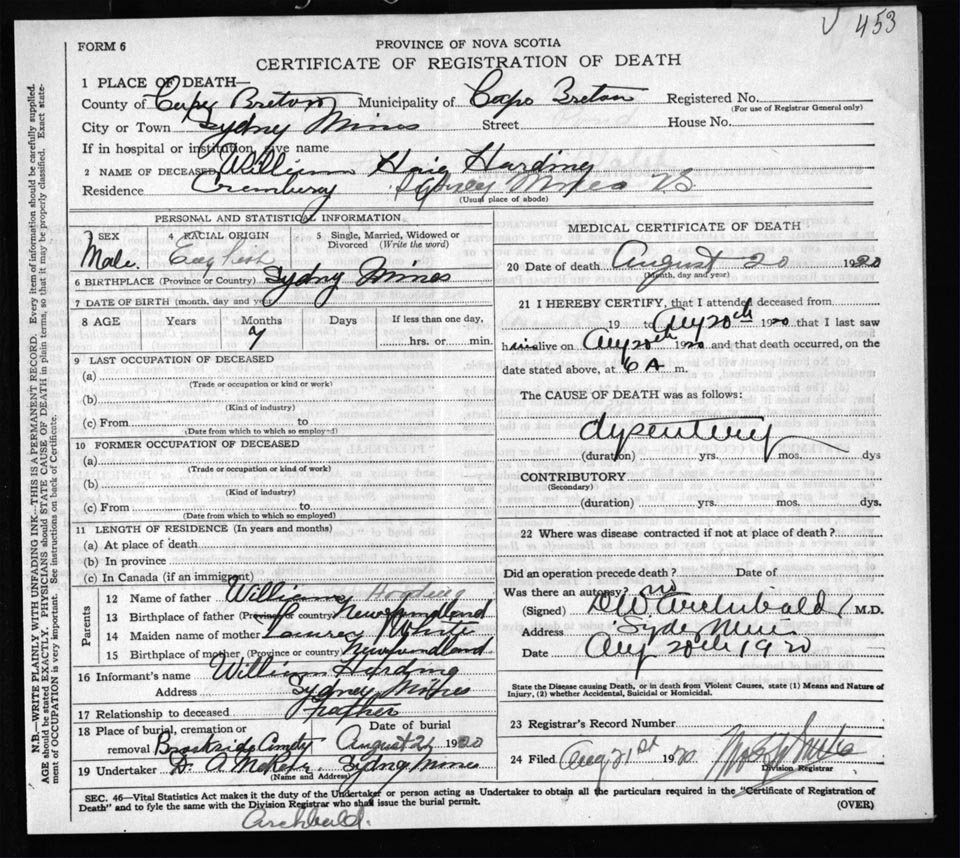 453
FORM 6
PROVINCE OF NOVA SCOTIA
CERTIFICATE OF REGISTRATION OF DEATH
N.B.—WRITE PLAINLY WITH UNFADING INK—THIS IS A PERMANENT RECORD. Every item of information should be carefully supplied.
AGE should be stated EXACTLY. PHYSICIANS should STATE CAUSE OF DEATH in plain terms, so that it may be properly classified. Exact state-
ment of OCCUPATION is very important. See instructions on back of Certificate.
1 PLACE OF DEATH—
County of Cape Breton Municipality of Cape Breton Registered No.
(For use of Registrar General only)
City or Town Sydney Mines Street House No.
If in hospital or institution, give name
2 NAME OF DECEASED William Haig Harding
Residence Sydney Mines N.S.
(Usual place of abode)
PERSONAL AND STATISTICAL INFORMATION
3 SEX 4 RACIAL ORIGIN 5 Single, Married, Widowed or
Divorced (Write the word)
Male. English
6 BIRTHPLACE (Province or Country) Sydny Mines
7 DATE OF BIRTH (month, day and year)
8 AGE Years Months Days If less than one day,
7 hrs. or min.
9 LAST OCCUPATION OF DECEASED
(a)
(Trade or occupation or kind or work)
(b)
(Kind of industry)
(c) From to
(Date from which to which so employed)
10 FORMER OCCUPATION OF DECEASED
(a)
(Trade or occupation or kind of work)
(b)
(Kind of industry)
(c) From to
(Date from which to which so employed)
11 LENGTH OF RESIDENCE (In years and months)
(a) At place of death
(b) In province
(c) In Canada (if an immigrant)
Parents
12 Name of father William Harding
13 Birthplace of father (Province or country) Newfundland
14 Maiden name of mother White
15 Birthplace of mother (Province or country) Newfundland
16 Informant's name William Harding
Address Sydney Mines
17 Relationship to deceased Father
18 Place of burial, cremation or Date of burial
removal Brookside Cemety August 21 1920
19 Undertaker D. A. Sydny Mines
(Name and Address)
MEDICAL CERTIFICATE OF DEATH
20 Date of death August 20 1920
(Month, day and year)
21 I HEREBY CERTIFY, that I attended deceased from
19 to Aug 20th 1920 that I last saw
him alive on Aug 20th 1920 and that death occurred, on the
date stated above, at 6 A m.
The CAUSE OF DEATH was as follows:
dysentery
(duration) yrs. mos. dys
CONTRIBUTORY
(Secondary)
(duration) yrs. mos. dys.
22 Where was disease contracted if not at place of death?
Did an operation precede death? Date of
Was there an autopsy? no
(Signed) Archibald M.D.
Address Syd Mines
Date Aug 20th 1920
State the Disease causing Death, or in death from Violent Causes, state (1) Means and Nature of
Injury, (2) whether Accidental, Suicidal or Homicidal.
23 Registrar's Record Number
24 Filed Aug 21st 1920
Division Registrar
SEC. 46—Vital Statistics Act makes it the duty of the Undertaker or person acting as Undertaker to obtain all the particulars required in the "Certificate of Registration of
Death" and to fyle the same with the Division Registrar who shall issue the burial permit. (OVER)
Archbald.